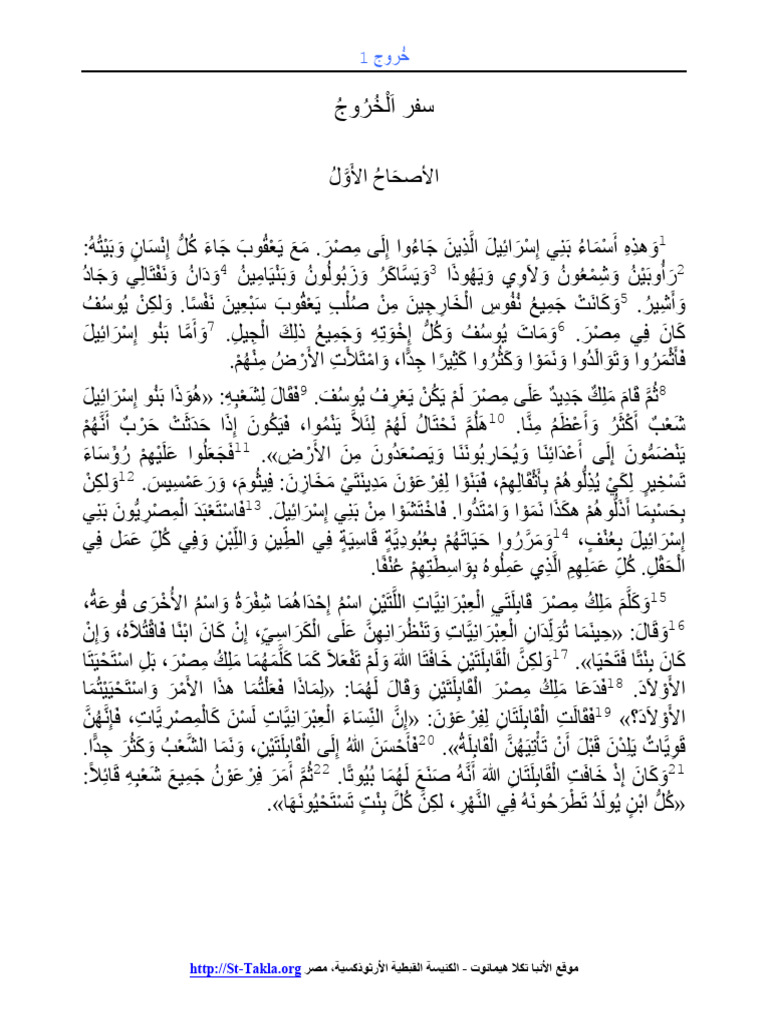 خُروج 1
سفر اَلْخُرُوجُ
الأصحَاحُ الأَوَّلُ
1وَهذِهِ أَسْمَاءُ بَنِي إِسْرَائِيلَ الَّذِينَ جَاءُوا إِلَى مِصْرَ. مَعَ يَعْقُوبَ جَاءَ كُلُّ إِنْسَانٍ وَبَيْتُهُ:
2رَأُوبَيْنُ وَشِمْعُونُ وَلاَوِي وَيَهُوذَا 3وَيَسَّاكَرُ وَزَبُولُونُ وَبَنْيَامِينُ 4وَدَانُ وَنَفْتَالِي وَجَادُ
وَأَشِيرُ. 5وَكَانَتْ جَمِيعُ نُفُوسِ الْخَارِجِينَ مِنْ صُلْبِ يَعْقُوبَ سَبْعِينَ نَفْسًا. وَلكِنْ يُوسُفُ
كَانَ فِي مِصْرَ. 6وَمَاتَ يُوسُفُ وَكُلُّ إِخْوَتِهِ وَجَمِيعُ ذلِكَ الْجِيلِ. 7وَأَمَّا بَنُو إِسْرَائِيلَ
فَأَثْمَرُوا وَتَوَالَدُوا وَنَمَوْا وَكَثُرُوا كَثِيرًا جِدًّا، وَامْتَلأَتِ الأَرْضُ مِنْهُمْ.
8ثُمَّ قَامَ مَلِكٌ جَدِيدٌ عَلَى مِصْرَ لَمْ يَكُنْ يَعْرِفُ يُوسُفَ. 9فَقَالَ لِشَعْبِهِ: «هُوَذَا بَنُو إِسْرَائِيلَ
شَعْبٌ أَكْثَرُ وَأَعْظَمُ مِنَّا. 10هَلُمَّ نَحْتَالُ لَهُمْ لِئَلاَّ يَنْمُوا، فَيَكُونَ إِذَا حَدَثَتْ حَرْبٌ أَنَّهُمْ
يَنْضَمُّونَ إِلَى أَعْدَائِنَا وَيُحَارِبُونَنَا وَيَصْعَدُونَ مِنَ الأَرْضِ». 11فَجَعَلُوا عَلَيْهِمْ رُؤَسَاءَ
تَسْخِيرٍ لِكَيْ يُذِلُّوهُمْ بِأَثْقَالِهِمْ، فَبَنَوْا لِفِرْعَوْنَ مَدِينَتَيْ مَخَازِنَ: فِيثُومَ، وَرَعَمْسِيسَ. 12وَلكِنْ
بِحَسْبِمَا أَذَلُّوهُمْ هكَذَا نَمَوْا وَامْتَدُّوا. فَاخْتَشَوْا مِنْ بَنِي إِسْرَائِيلَ. 13فَاسْتَعْبَدَ الْمِصْرِيُّونَ بَنِي
إِسْرَائِيلَ بِعُنْفٍ، 14وَمَرَّرُوا حَيَاتَهُمْ بِعُبُودِيَّةٍ قَاسِيَةٍ فِي الطِّينِ وَاللِّبْنِ وَفِي كُلِّ عَمَل فِي
الْحَقْلِ. كُلِّ عَمَلِهِمِ الَّذِي عَمِلُوهُ بِوَاسِطَتِهِمْ عُنْفًا.
15وَكَلَّمَ مَلِكُ مِصْرَ قَابِلَتَيِ الْعِبْرَانِيَّاتِ اللَّتَيْنِ اسْمُ إِحْدَاهُمَا شِفْرَةُ وَاسْمُ الأُخْرَى فُوعَةُ،
16وَقَالَ: «حِينَمَا تُوَلِّدَانِ الْعِبْرَانِيَّاتِ وَتَنْظُرَانِهِنَّ عَلَى الْكَرَاسِيِّ، إِنْ كَانَ ابْنًا فَاقْتُلاَهُ، وَإِنْ
كَانَ بِنْتًا فَتَحْيَا». 17وَلكِنَّ الْقَابِلَتَيْنِ خَافَتَا اللهَ وَلَمْ تَفْعَلاَ كَمَا كَلَّمَهُمَا مَلِكُ مِصْرَ، بَلِ اسْتَحْيَتَا
الأَوْلاَدَ. 18فَدَعَا مَلِكُ مِصْرَ الْقَابِلَتَيْنِ وَقَالَ لَهُمَا: «لِمَاذَا فَعَلْتُمَا هذَا الأَمْرَ وَاسْتَحْيَيْتُمَا
الأَوْلاَدَ؟» 19فَقَالَتِ الْقَابِلَتَانِ لِفِرْعَوْنَ: «إِنَّ النِّسَاءَ الْعِبْرَانِيَّاتِ لَسْنَ كَالْمِصْرِيَّاتِ، فَإِنَّهُنَّ
قَوِيَّاتٌ يَلِدْنَ قَبْلَ أَنْ تَأْتِيَهُنَّ الْقَابِلَةُ». 20فَأَحْسَنَ اللهُ إِلَى الْقَابِلَتَيْنِ، وَنَمَا الشَّعْبُ وَكَثُرَ جِدًّا.
21وَكَانَ إِذْ خَافَتِ الْقَابِلَتَانِ اللهَ أَنَّهُ صَنَعَ لَهُمَا بُيُوتًا. 22ثُمَّ أَمَرَ فِرْعَوْنُ جَمِيعَ شَعْبِهِ قَائِلاً:
«كُلُّ ابْنٍ يُولَدُ تَطْرَحُونَهُ فِي النَّهْرِ، لكِنَّ كُلَّ بِنْتٍ تَسْتَحْيُونَهَا».
موقع الأنبا تكلا هيمانوت - الكنيسة القبطية الأرثوذكسية، مصر http://St-Takla.org